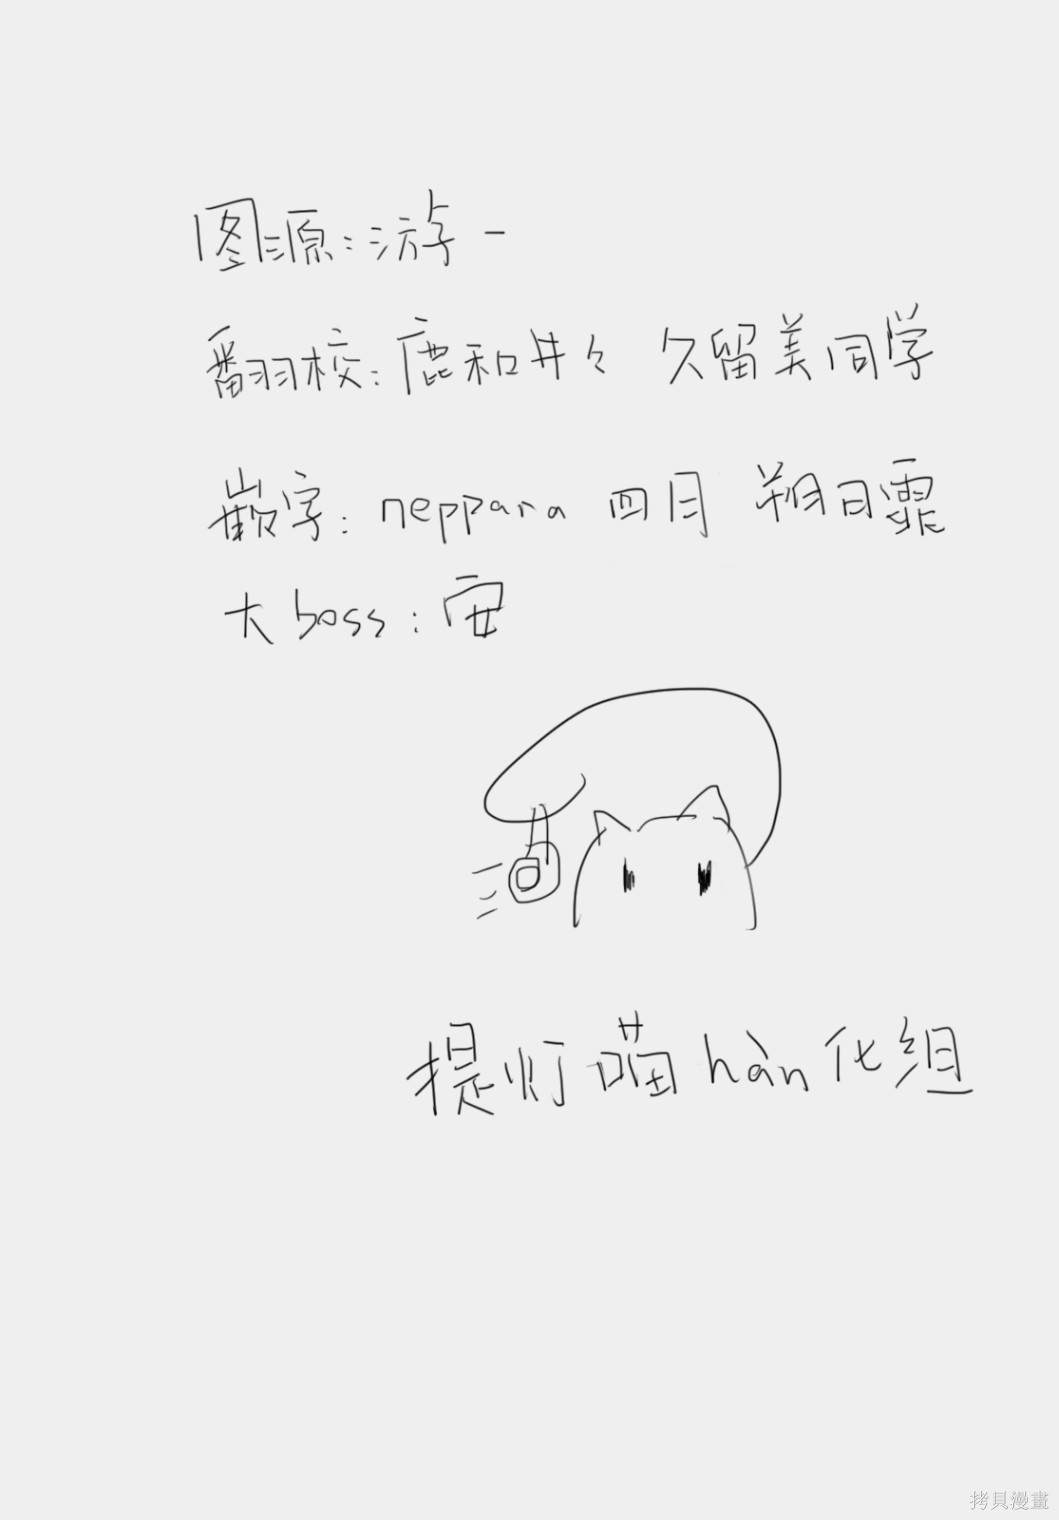 图源：游一
翻校：鹿和井々 久留美同学
嵌字：neppara 四月 朔日霏
大boss：安
提灯喵hàn化组
拷貝漫畫